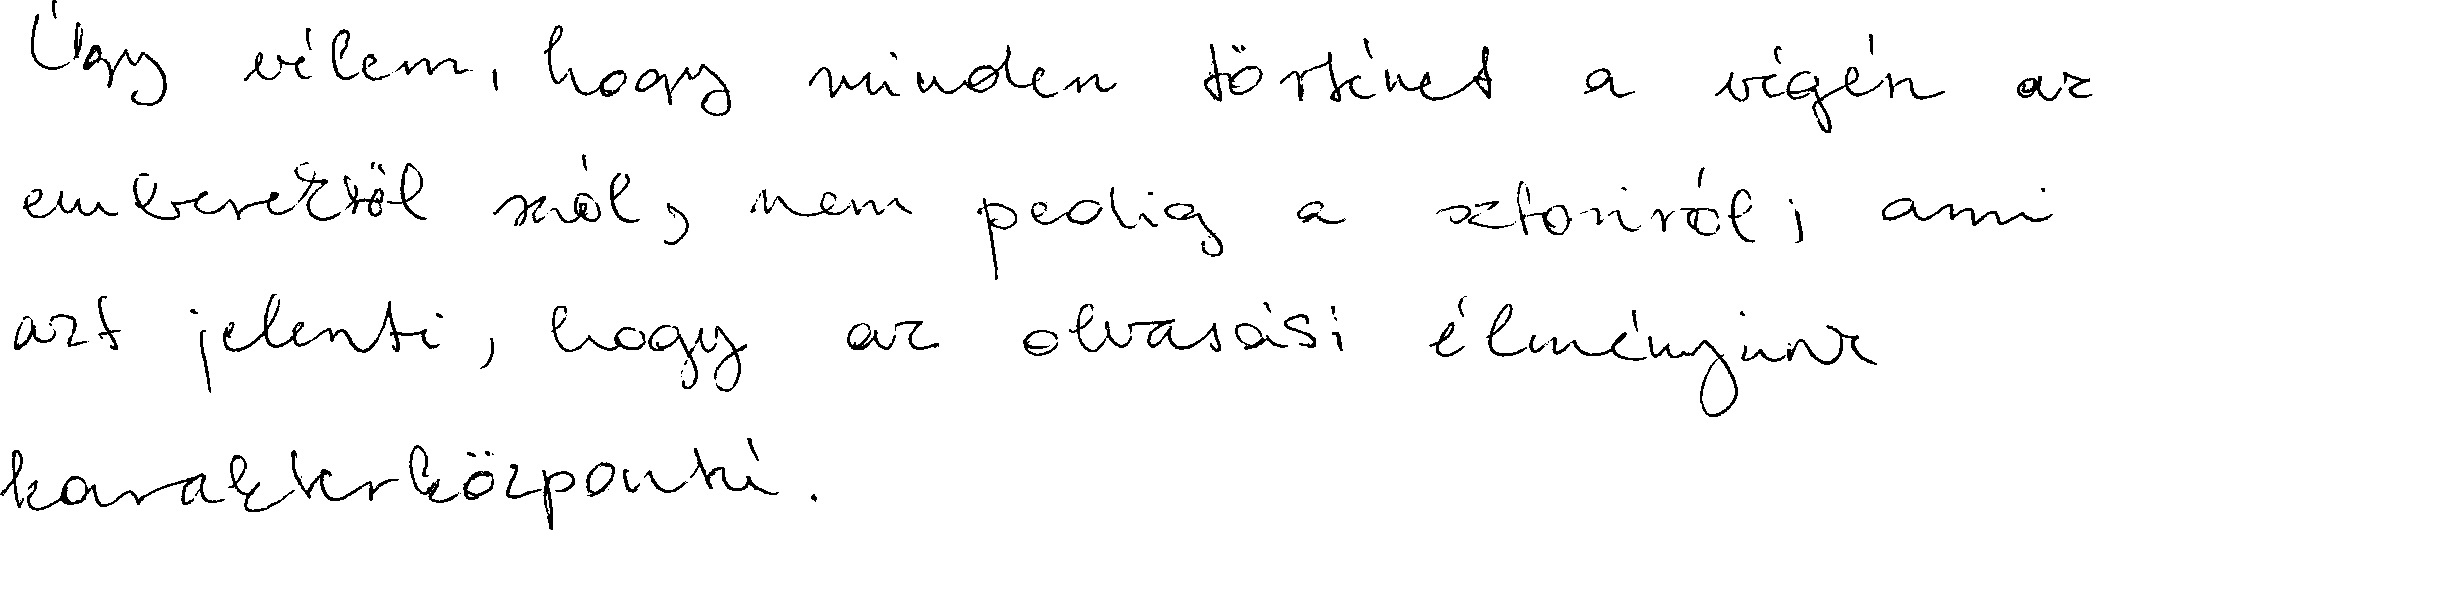 Úgy vélem, hogy minden történet a végén az
emberektől szól, nem pedig a sztoriról, ami
azt jelenti, hogy az olvasási élményünk
karakterközpontú.